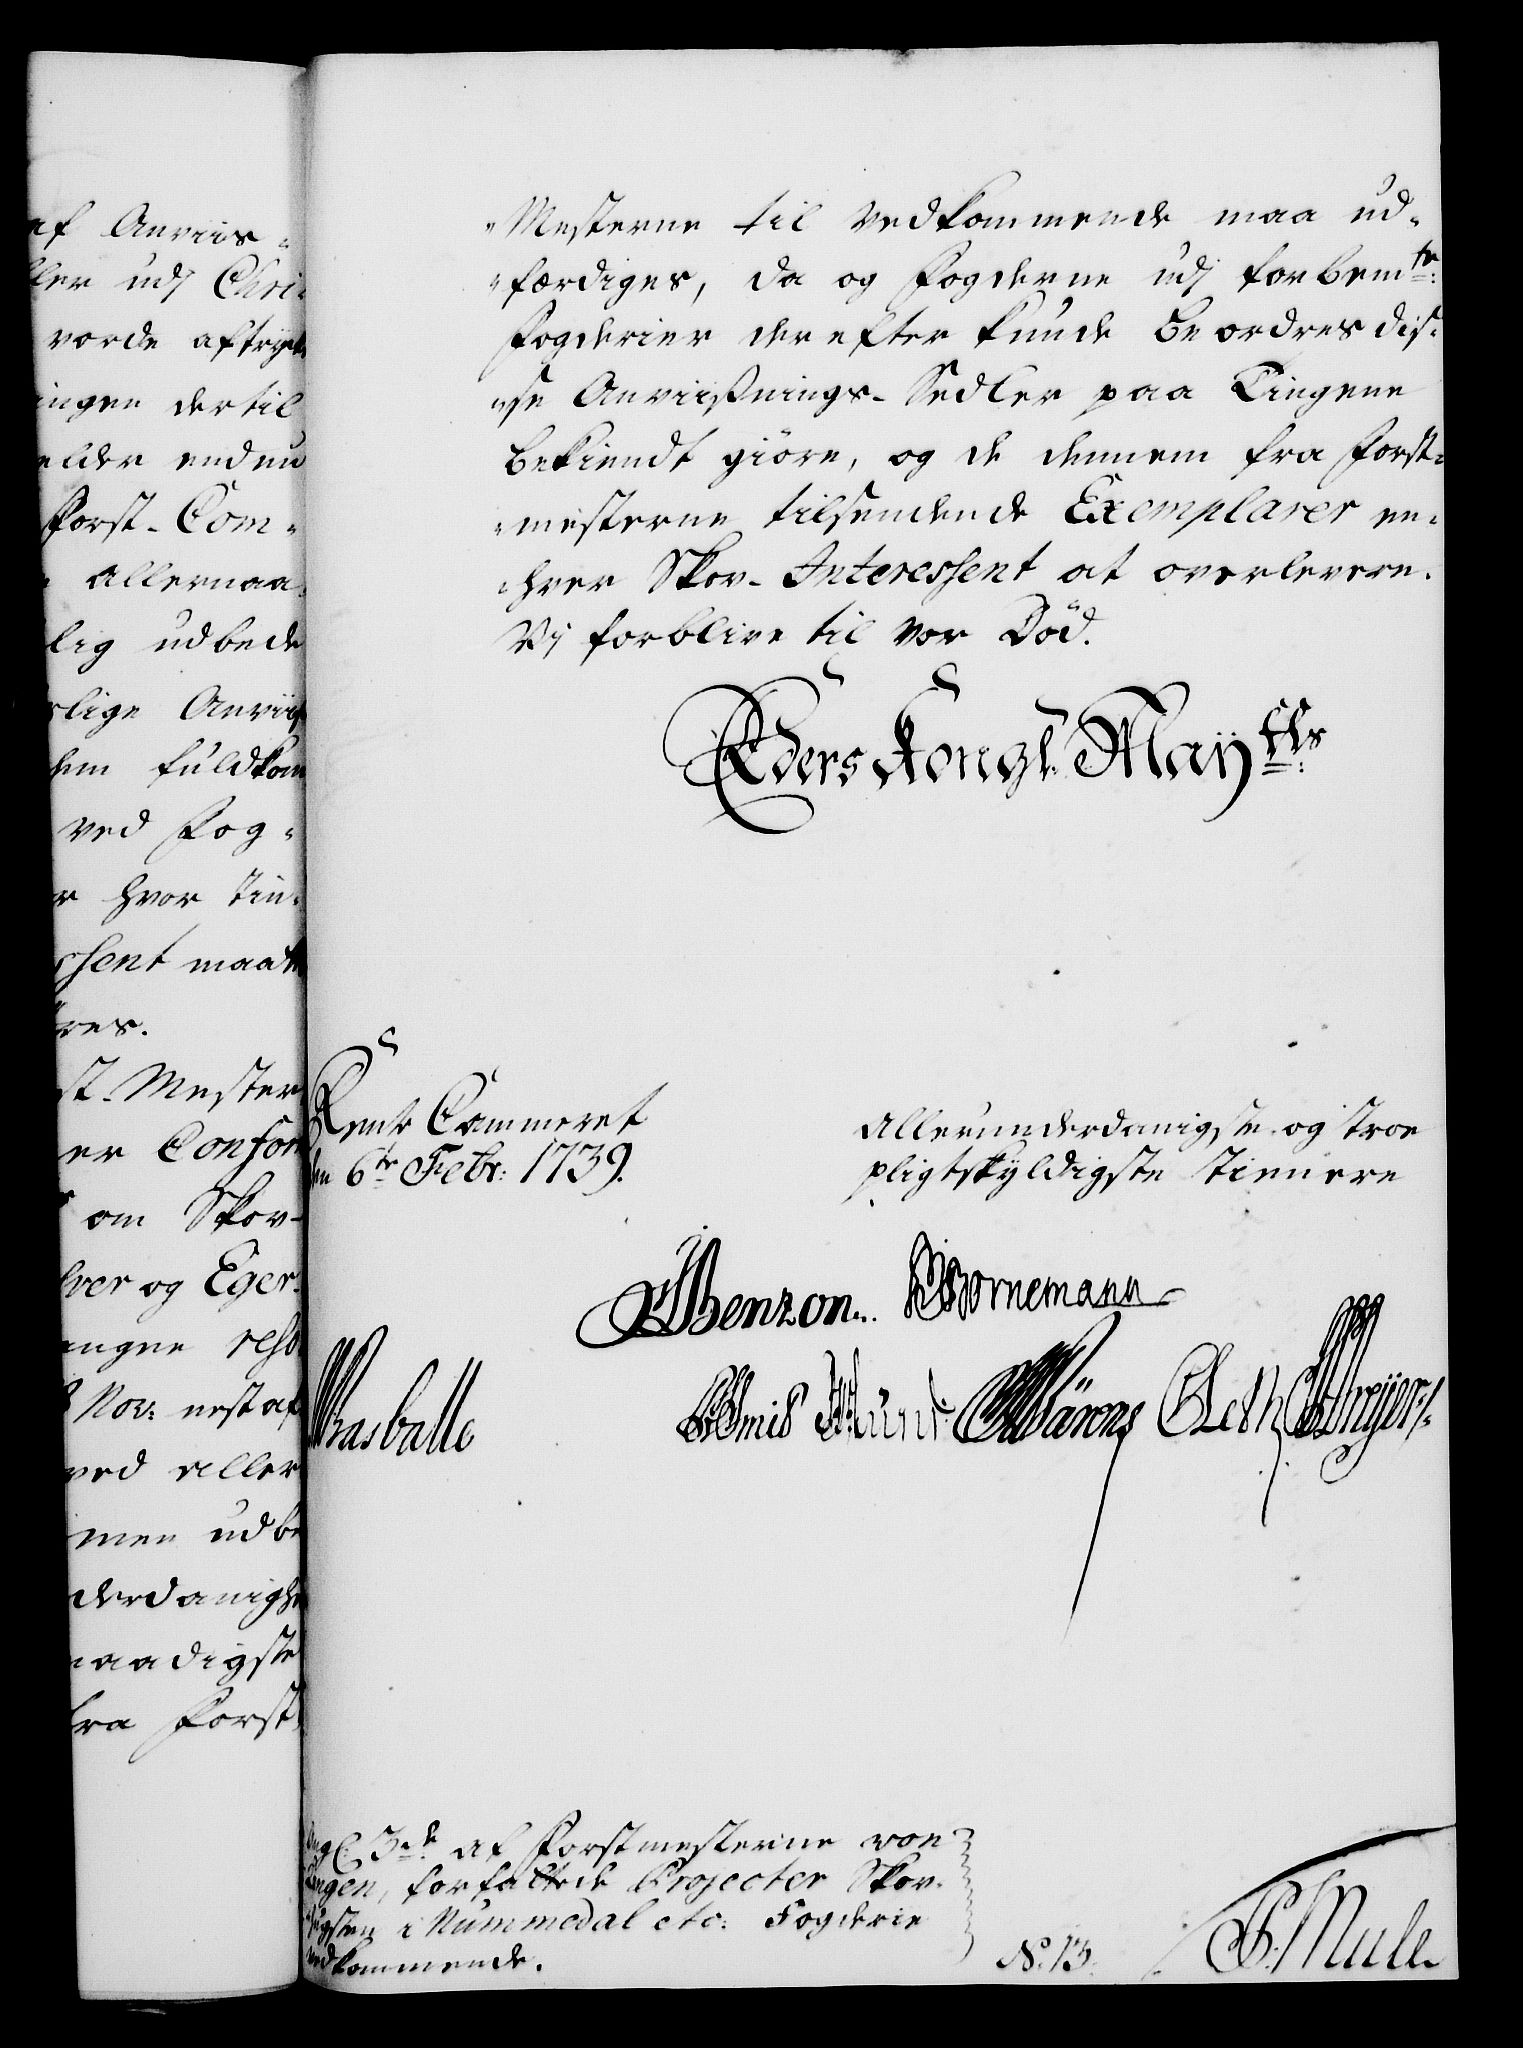 af Anviis-
ller udj Chri-
vorde aftrykt
ingen dertil
elder endnu
Forst-Com-
allernaa-
lig udbede
rlige Anviis
hem fuldkom
ved Fog-
r hvor Tin-
essent maatte
res.
st-Mester
er Conform
om Skov-
lver og Eger-
angne reso
Nov: nest af
ved aller
men udbe
derdanighe
naadigste
fra Forst-
"Mesterne til vedkommende maa ud-
"færdiges, da og Fogderne udj forbemte:
Fogderier derefter kunde beordres dis-
"se Anviißnings-Sedler paa Tingene
bekiendt giöre, og de dennem fra Forst-
"mesterne tilsendende Exemplarer en-
"hver Skov-Interessent at overlevere.
Vj forblive til vor Död.
Eders Kongl. Mayts:
Rente Cammeret
den 6te Febr: 1739.
Allerunderdanigste og troe
pligtskyldigste tienere
Benzon. Bornemann
Rasballe
Smid
Bärens
Dreyer
3de af Forstmesterne von
Langen, forfattede Projecter Skov-
i Nummedal etc: Fogderie
vedkommende.
No. 13.
F. Mule